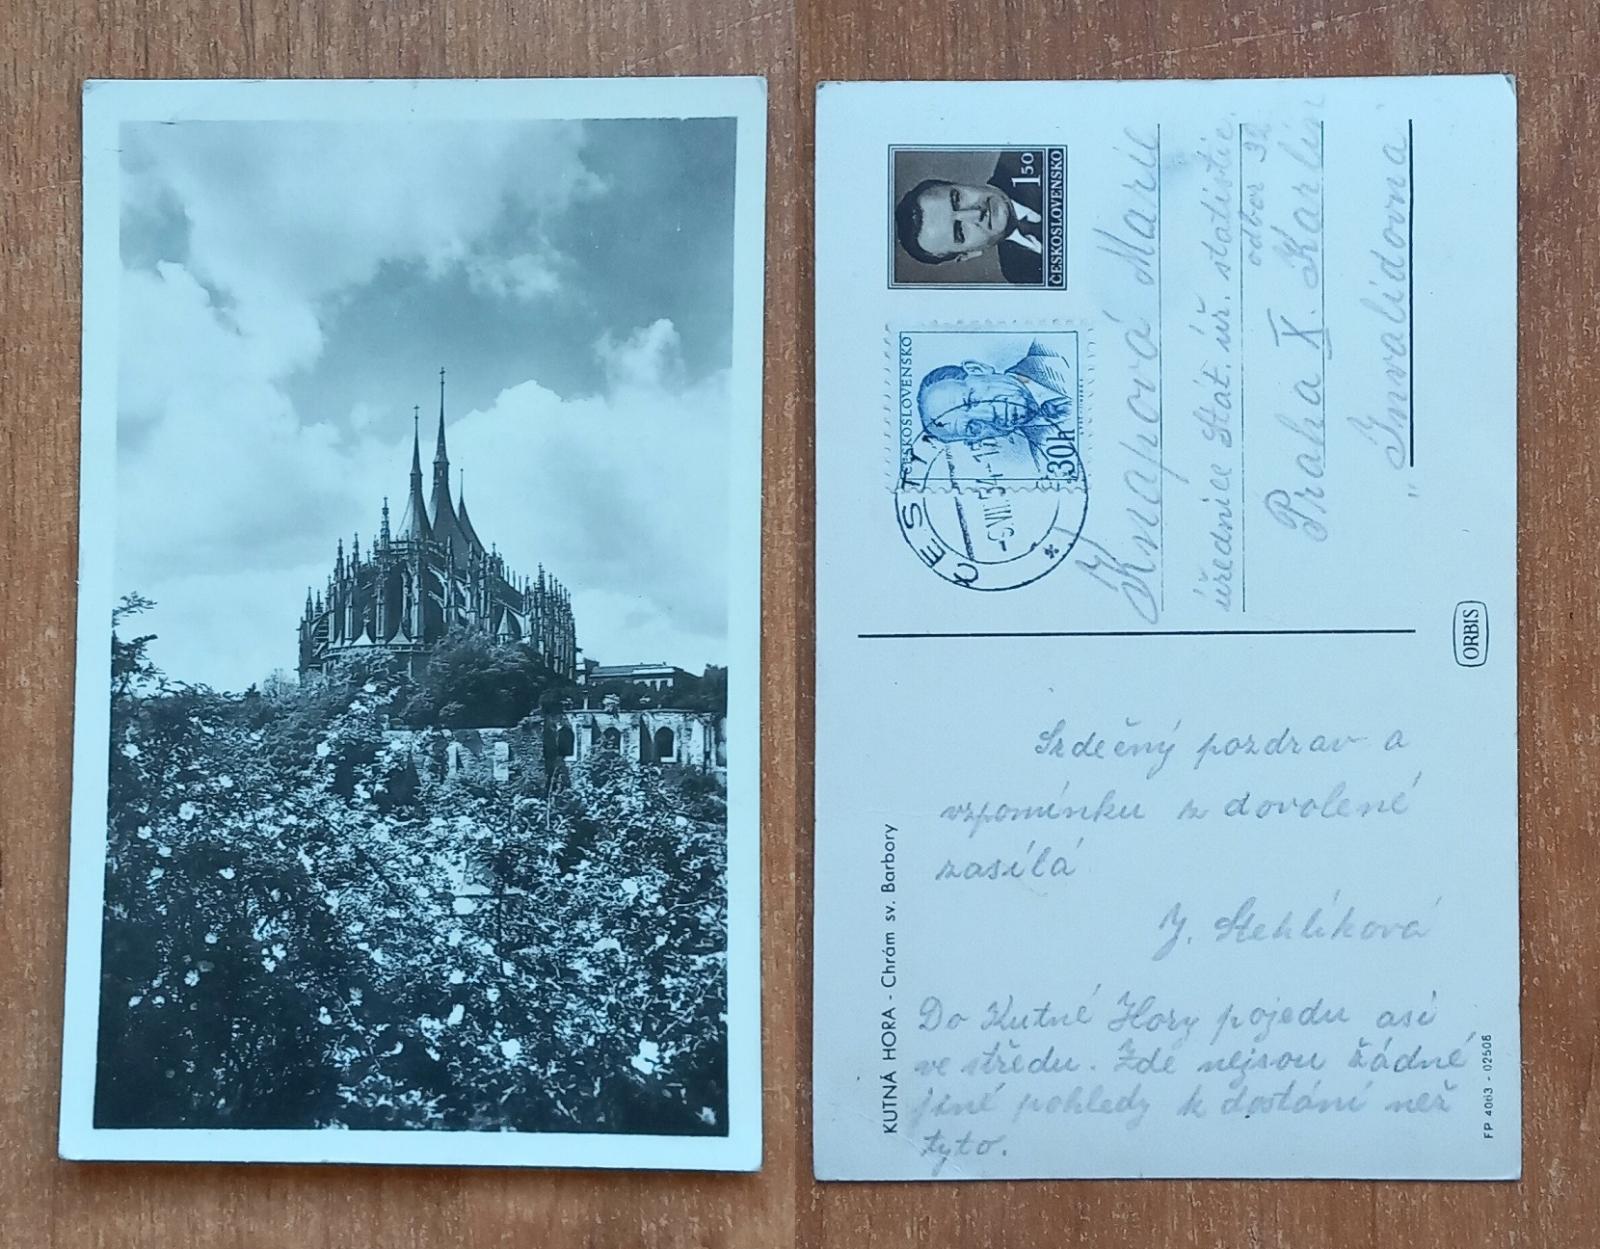 ČESKOSLOVENSKO
1 50
ČESKOSLOVENSKO
30h
-9.VII.54-17
Knapová Marie
úřednice Stát. úř. statistic.
odbor 32
Praha X. Karlín
"Invalidovna"
ORBIS
Srdečný pozdrav a
vzpomínku z dovolené
zasílá
J. Stehlíková
Do Kutné Hory pojedu asi
ve středu. Zde nejsou žádné
jiné pohledy k dostání než
tyto.
KUTNÁ HORA - Chrám sv. Barbory
FP 4063 - 02508